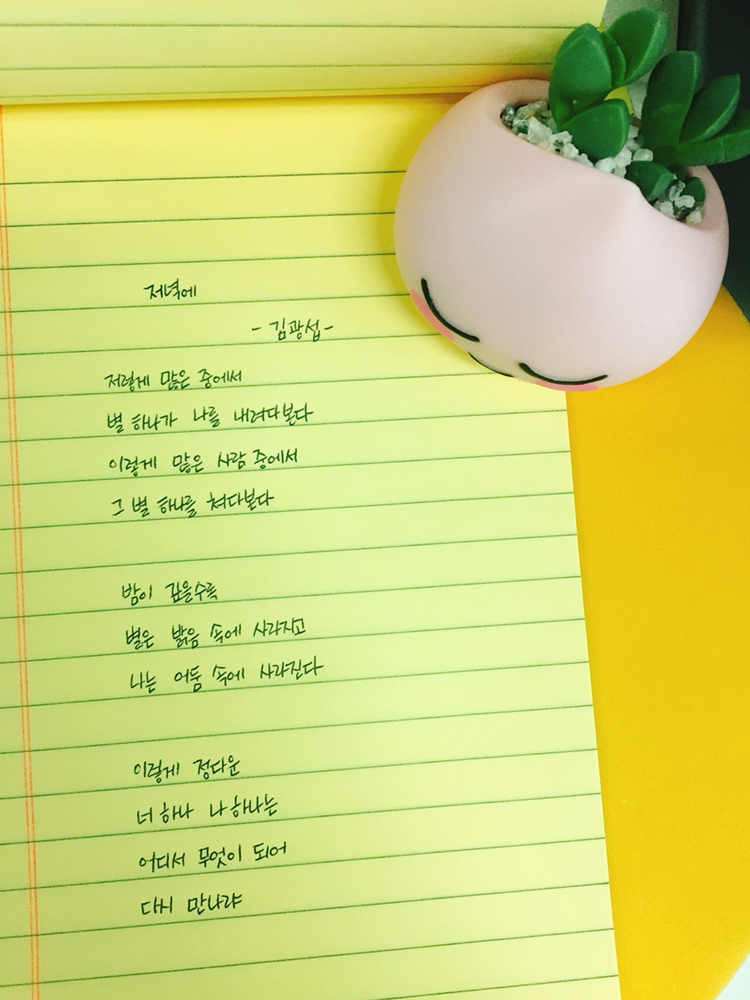 저녁에
- 김광섭 -
저렇게 많은 중에서
별 하나가 나를 내려다본다
이렇게 많은 사람 중에서
그 별 하나를 쳐다본다
밤이 깊을수록
별은 밝음 속에 사라지고
나는 어둠 속에 사라진다
이렇게 정다운
너 하나 나 하나는
어디서 무엇이 되어
다시 만나랴